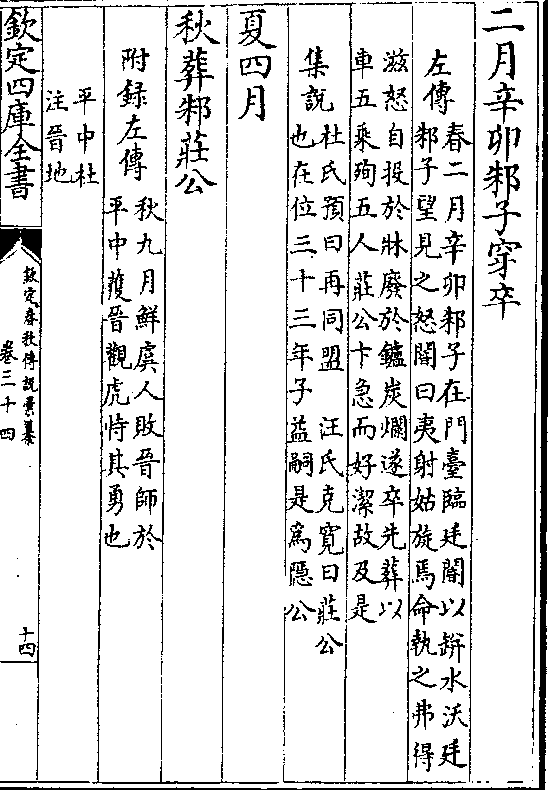 二月辛卯邾子穿卒
左傳
春二月辛卯邾子在門臺臨廷閽以缾水沃廷
邾子望見之怒閽曰夷射姑旋焉命執之弗得
滋怒自投於牀廢於鑪炭爛遂卒先葬以
車五乘殉五人莊公卞急而好潔故及是
集說
杜氏預曰再同盟　汪氏克寛曰莊公
也在位三十三年子益嗣是爲隱公
夏四月
秋葬邾莊公
附録左傳
秋九月鮮虞人敗晉師於
平中獲晉觀虎恃其勇也
平中杜
注晉地
欽定四庫全書
欽定春秋傳說彙纂
卷三十四
十四